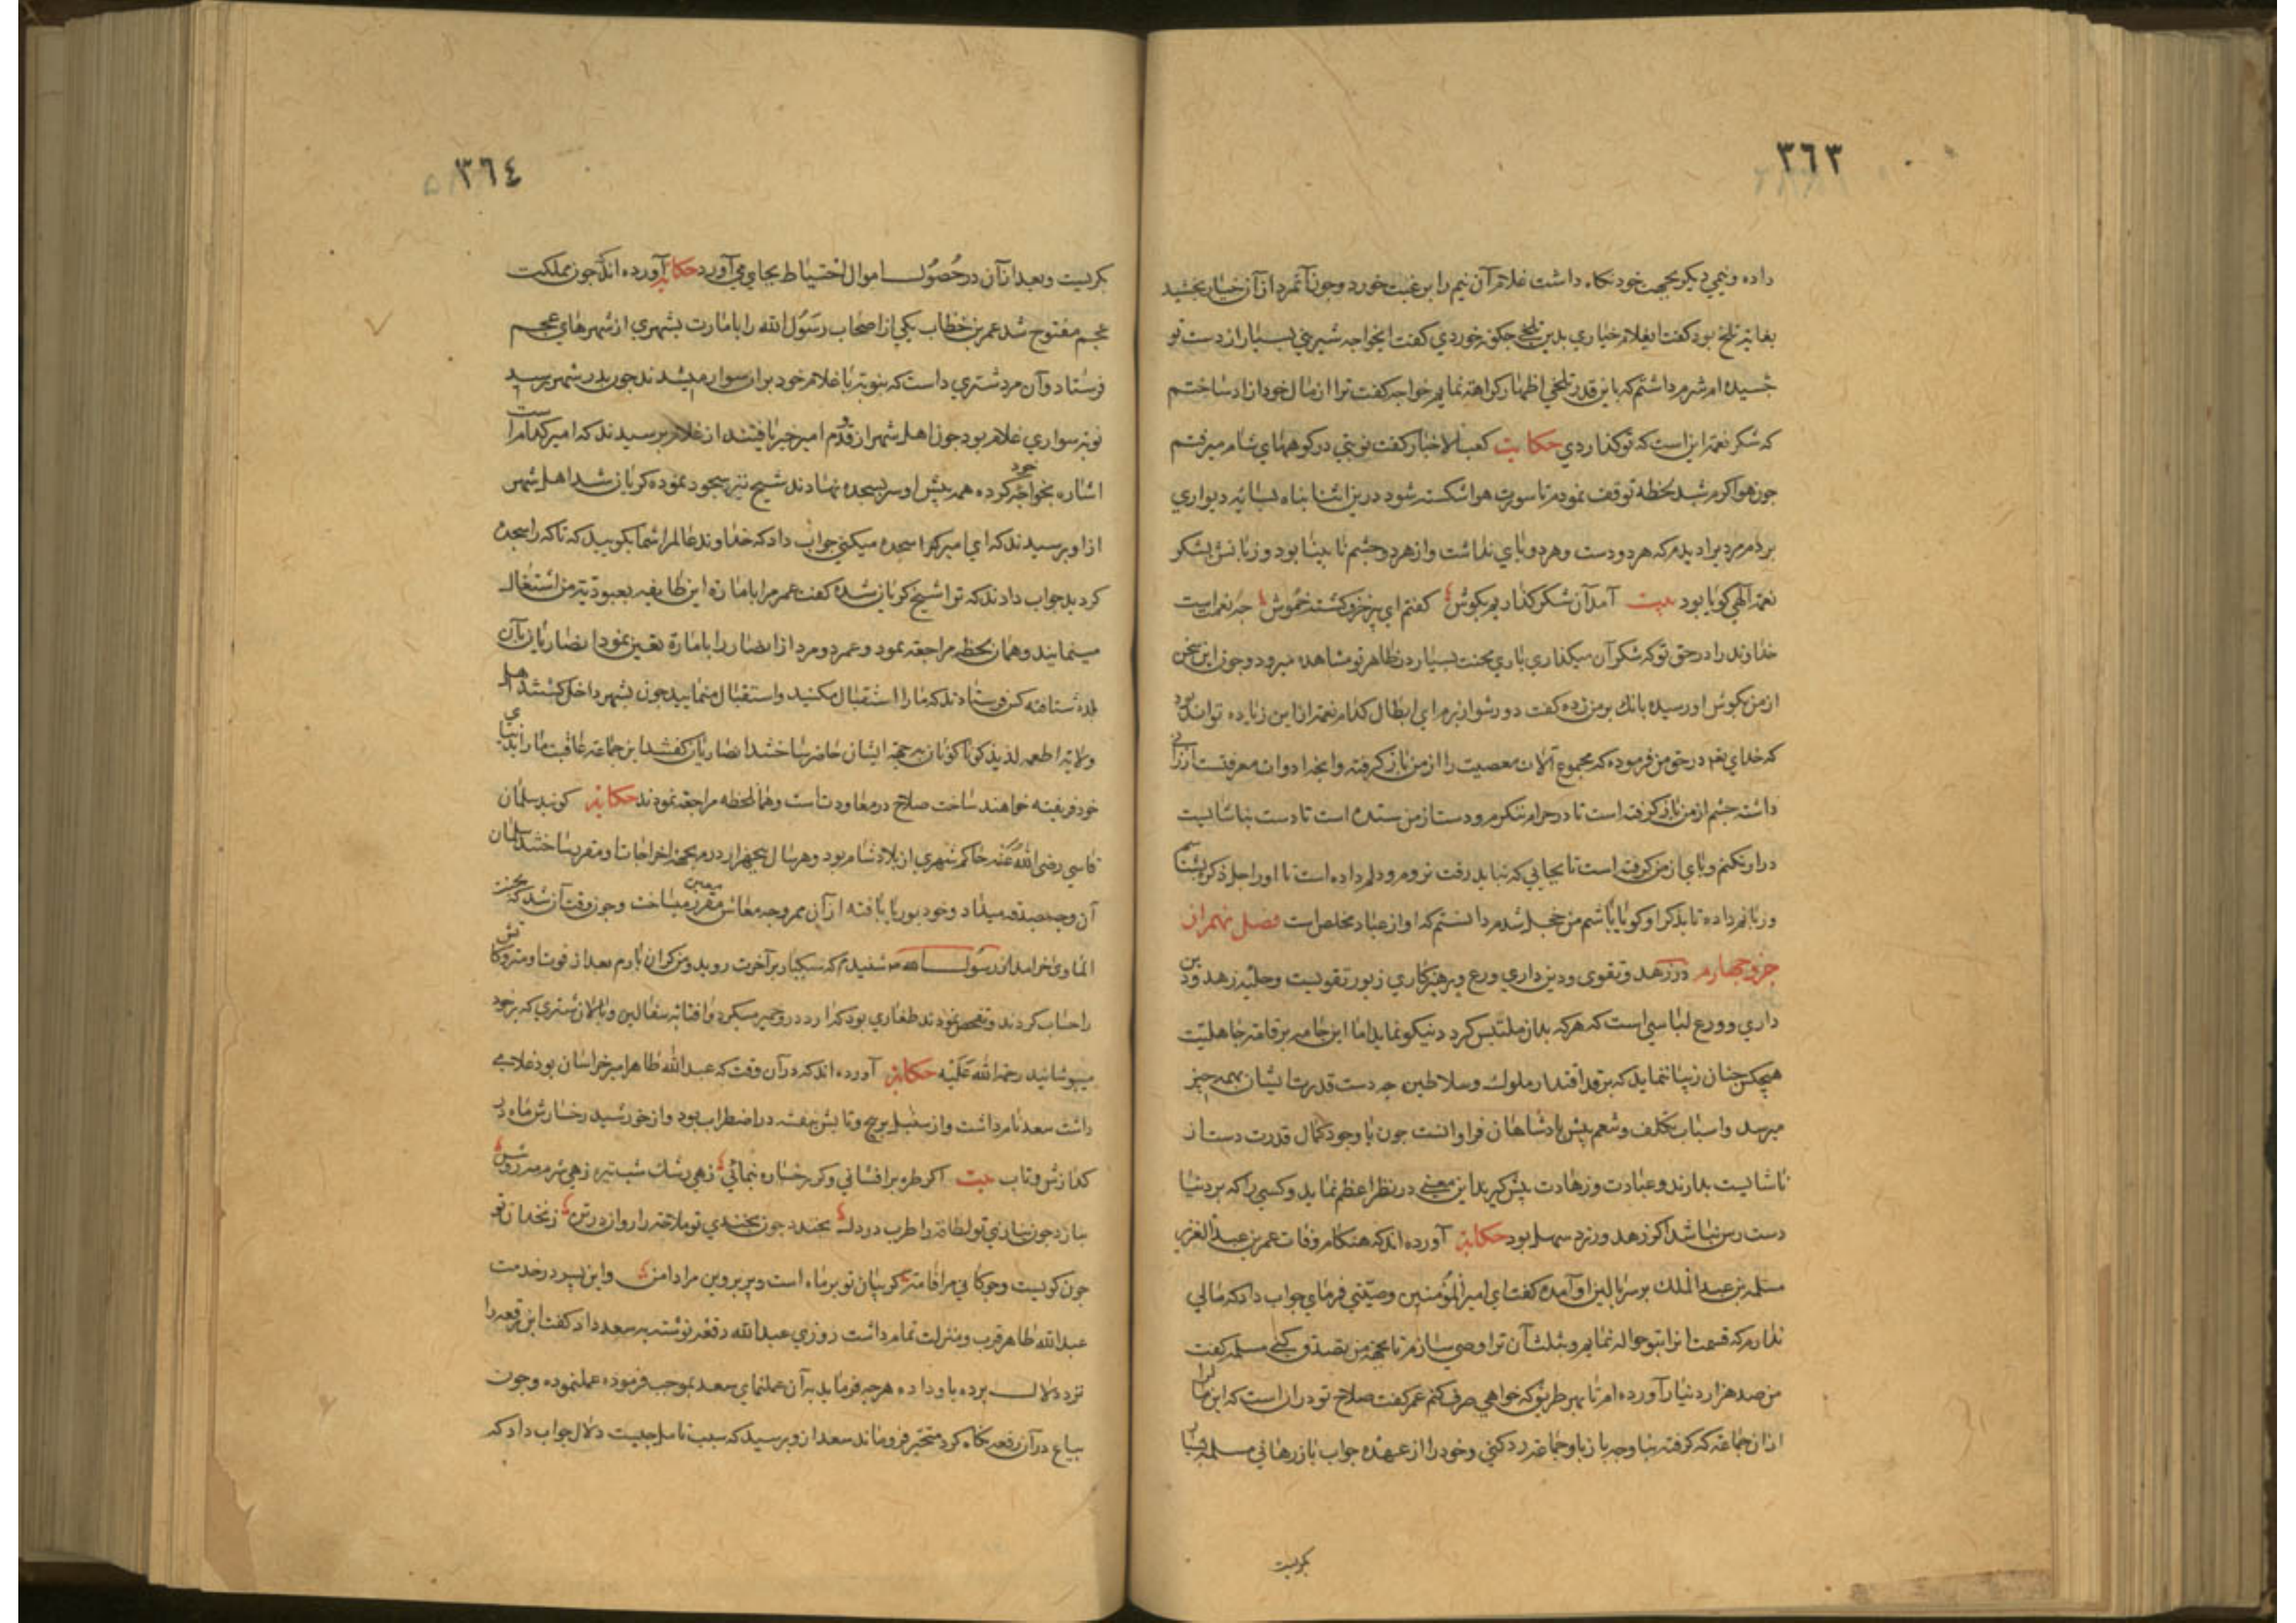 ٣٦٣
داده و نیمی دیکر بجهت خود نکاه داشت غلام آن نیم را برغبت خورد و جون آنمرد از آن خیار بجشید
بغایة تلخ بود کفت ایغلام خیاری بدین تلخی جکونه خوردی کفت ایخواجه شیرینی بسیار از دست تو
جشیده ام شرم داشتم که باین قدر تلخی اظهار کراهة نمایم خواجه کفت ترا از مال خود ازاد ساختم
که شکر نعمة این است که تو کذاردی حکایت کعب الاخبار کفت نوبتی در کوههای شام میرفتم
جون هوا کرم شد لحظه توقف نمودم تا سورت هوا شکسته شود درین اثنا بناه بسایه دیواری
بردم مردیرا دیدم که هر دو دست و هر دو بای نداشت و از هر دو جشم نابینا بود و زبانش بشکر
نعمة الهی کویا بود بیت آمد آن شکر کذاریم بکوش کفتم ای پیر خزف کشته خموش جه نعمت است
خداوند را در حق تو که شکر آن میکذاری باری محنت بسیار در ظاهر تو مشاهده میرود و جون این سخن
از من بکوش او رسیده بانک بر من زده کفت دور شو از برم ای ابطال کدام نعمة از این زیاده تواند بود
که خدای تعه در حق من فرموده که مجموع آلات معصیت را از من باز کرفته و انجه ادوات معرفتست ارزانی
داشته جشم از من باز کرفته است تا در حرام ننکرم و دست از من ستده است تا دست بناشایست
دراز نکنم و بای از من کرفته است تا بجایی که نباید رفت نروم و دلم داده است تا او را جل ذکره بشناسم
و زبانم داده تا بذکر او کویا باشم من خجل شدم دانستم که او از عباد مخلص است فصل نهم از
جزو جهارم در زهد و تقوی و دین داری ورع و پرهیزکاری زیور تقویست و حلیه زهد و دین
داری و ورع لباسی است که هرکه بدان ملتبس کردد نیکو نماید اما این جامه بر قامة جاهلیت
هیجکس جنان زیبا ننماید که بر قد اقتدار ملوک و سلاطین جه دست قدرت ایشان بهمه جیز
میرسد و اسباب تکلف و تنعم پیش بادشاهان فراوانست جون با وجود کمال قدرت دست از
ناشایست بدارند و عبادت و زهادت پیش کیرند این معنی در نظر اعظم نماید و کسی را که بر دنیا
دست رس نباشد اکر زهد ورزد سهل بود حکایة آورده اند که هنکام وفات عمر بن عبد العزیز
مسلمه بن عبد الملک بر سر بالین او آمده کفت ای امیر المؤمنین وصیتی فرمای جواب داد که مالی
ندارم که قسمت انرا بتو حواله نمایم و بثلث آن ترا وصی سازم تا بجهة من تصدق کنی مسلمه کفت
من صد هزار دنیار آورده ام تا بهر طریق که خواهی صرف کنم عمر کفت صلاح تو در ان است که این مال را
از ان جماعة که کرفته بناوجه باز باو جماعه رد کنی و خود را از عهده جواب باز رهانی مسلمه بسیار
بکریست
٣٦٤
بکریست و بعد از آن در حصول اموال احتیاط بجای می آورد حکایة آورده اند جون مملکت
عجم مفتوح شد عمر بن خطاب یکی از اصحاب رسول الله را بامارت بشهری از شهرهای عجم
فرستاد و آن مرد شتری داشت که بنوبة با غلام خود بران سوار میشدند جون بدر شهر رسید
نوبة سواری غلام بود جون اهل شهر از قدوم امیر خبر یافتند از غلام برسیدند که امیر کدام است
اشاره بخواجه خود کرده همه پیش او سر بسجده نهادند شیخ نیز سجود نموده کریان شد اهل شهر
از او برسیدند که ای امیر کرا سجده میکنی جواب داد که خداوند عالم را شما بکویید که تا که را سجده
کردید جواب دادند که ترا شیخ کریان شده کفت عمر مرا بامارة این طایفه بعبودیة من اشتغال
مینمایند و همان لحظه مراجعة نمود و عمر دو مرد از انصار را بامارة تعیین نمود انصاریان بآن
بلده شتافته کس فرستادند که ما را استقبال مکنید و استقبال منمایید جون بشهر داخل کشتند اهل
ولایة اطعمه لذیذ کوناکون به جهة ایشان حاضر ساختند انصاریان کفتند این جماعة عاقبت ما را بدنیای
خود فریفته خواهند ساخت صلاح در معاودت است و همان لحظه مراجعة نمودند حکایة کویند سلمان
فاسی رضی الله عنه حاکم شهری از بلاد شام بود و هر سال پنجهزار درم بجهة اخراجات او مقرر ساختند سلمان
آن وجه بصدقه میداد و خود بوریا بافته از آن ممر وجه معاش معین مقرر میساخت و جون وقت آن شد که بجنة
الماوی خرامد از رسول الله ص شنیدم که سبکبار بر آخرت روید و من کران بارم بعد از فوت او متروکاتش
را حساب کردند و تفحص نمودند طغاری بود که ارد در و خمیر میکرد و افتابه سفالین و بالان شتری که بر خود
میپوشانید رحمة الله علیه حکایة آورده اند که در آن وقت که عبد الله طاهر امیر خراسان بود غلامی
داشت سعد نام داشت و از سنبل بر جین و تابش بنفشه در اضطراب بود و از خورشید رخسارش ماه در
کدازش و تاب بیت اکر طره برافشانی و کر رخساره بنمائی زهی رشک شب تیره زهی شرم مه روشن
بنازد جون بنازی تو لطافة را طرب در دل بخندد جون بخندی تو ملاحة را روان در تن زنخدان تو
جون کویست و جوکانی مرا قامة کریبان تو بر ماه است و پر پروین مرا دامن و این پسر در خدمت
عبدالله طاهر قرب و منزلت تمام داشت روزی عبدالله رقعه نوشته به سعد داد کفت این رقعه را
نزد دلال برده باو داده هرجه فرماید به آن عملنمای سعد بموجب فرموده عملنموده و جون
بیاع در آن رقعه نکاه کرد متحیر فرو ماند سعد از و برسید که سبب تامل جیست دلال جواب داد که